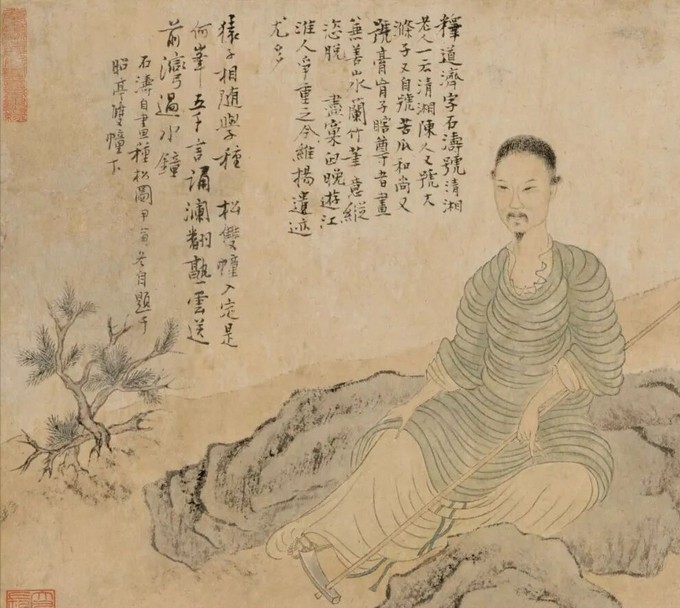 釋道濟字石濤號清湘
老人一云清湘陳人又號大
滌子又自號苦瓜和尚又
號膏肓子瞎尊者畫
兼善山水蘭竹筆意縱
恣脫盡窠臼晚遊江
淮人爭重之今維揚遺迹
尤多
猿子相隨學種松雙幢入定是
何峯五千言誦瀾翻熟雲送
前灣過水鐘
石濤自畫種松圖甲寅冬自題于
昭亭雙幢下